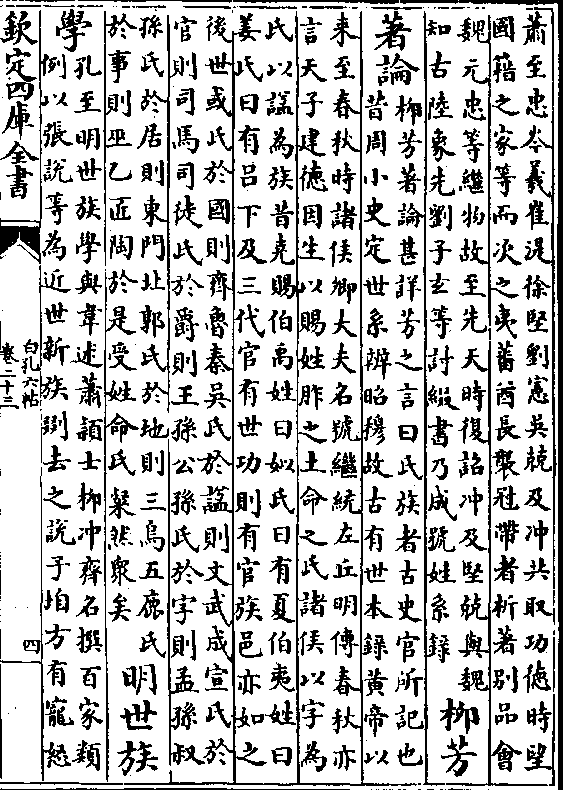 蕭至忠岑羲崔湜徐堅劉憲吳兢及冲共取功德時望
國籍之家等而次之夷蕃酋長襲冠帶者析著别品會
魏元忠等繼物故至先天時復詔冲及堅兢與魏
知古陸象先劉子玄等討綴書乃成號姓系錄
柳芳
著論
柳芳著論甚詳芳之言曰氏族者古史官所記也
昔周小史定世系辨昭穆故古有世本錄黄帝以
来至春秋時諸侯卿大夫名號繼統左丘明傳春秋亦
言天子建德因生以賜姓胙之土命之氏諸侯以字為
氏以諡為族昔堯賜伯禹姓曰姒氏曰有夏伯夷姓曰
姜氏曰有吕下及三代官有世功則有官族邑亦如之
後世或氏於國則齊魯秦吳氏於諡則文武成宣氏於
官則司馬司徒氏於爵則王孫公孫氏於字則孟孫叔
孫氏於居則東門北郭氏於地則三烏五鹿氏
於事則巫乙匠陶於是受姓命氏粲然衆矣
明世族
學
孔至明世族學與韋述蕭頴士柳冲齊名撰百家類
例以張說等為近世新族剟去之說子垍方有寵怒
欽定四庫全書
白孔六帖
卷二十三
四